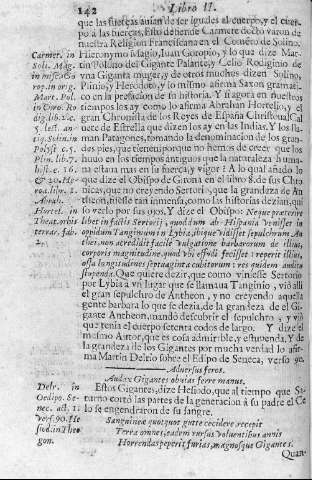 142
Libro II.
que las fuerças auian de ser iguales al cuerpo, y el cuer-
po a las fuerças, Esto defiende Carmere docto varon de
nuestra Religion Franciscana en el Comēto de Solino,
Hieronymo Magio, Iuan Goropio, y lo que dize Mar-
tin Polono del Gigante Palante, y Celio Rodiginio de
vna Giganta muger, y de otros muchos dizen Solino,
Plinio, y Herodoto, y lo mismo afirma Saxon gramati-
co en la prefacion de su historia. Y si agora en nuestros
tiempos los ay como lo afirma Abrahan Hortelio, y el
gran Chronista de los Reyes de España Christoual Cal
uete de Estrella que dizen los ay en las Indias. Y los lla-
man Patagones, tomando la denominacion de los gran-
des pies, que tienen: porque no hemos de creer que los
huuo en los tiempos antiguos que la naturaleza huma-
na estaua mas en su fuerça, y vigor? A lo qual añado lo
que dize el Obispo de Girona en el libro 8. de sus Chro
nicas, que no creyendo Sertori, que la grandeza de An
theon, fuesse tan inmensa, como las historias dezian, qui
so verlo por sus ojos. Y dize el Obispo: Neque præterire
libet in factis Sertorij, quod dum ab Hispania venisset in
oppidum Tanginum in Lybia, ibique vidisset sepulchrum An
thei, non acredidit facile vulgatione barbarorum de illius,
corporis magnitudine, quod vbi effodi fecisset: reperit illius,
ossa longitudinis septuaginta cubitorum: res quidem auditu
stupenda. Que quiere dezir, que como viniesse Sertorio
por Lybia a vn lugar que se llamaua Tanginio, vido alli
el gran sepulchro de Antheon, y no creyendo aquella
gente barbara lo que se dezia, de la grandeza de el Gi-
gante Antheon, mando descubrir el sepulchro, y vido
que tenia el cuerpo setenta codos de largo. Y dize el
mesmo Autor, que es cosa admirable, y estupenda, Y de
la grandeza de los Gigantes por mucha verdad lo afir-
ma Martin Delrio sobre el Edipo de Seneca, verso 90.
Aduersus feros.
Audax Gigantes obuias ferre manus.
Estos Gigantes, dize Hesiodo, que al tiempo que Sa-
turno cortó las partes de la generacion a su padre el Ce
lo se engendraron de su sangre.
Sanguineæ quotquot guttæ cecidere recepit
Terra omnes, eadem rursus voluentibus annis
Horrendas peperit furias, magnosque Gigantes.
Quan-
Carmer. in
Soli. Mag.
in
rop. in orig.
Mart. Pol.
dig. lib. 2. c.
Plin. lib. 7.
Abrah.
Hortel. in
Theat. orbis
terrar. tab.
Delr. in
Oedipo. Se-
nec. act. 1.
vers. 90. He
siod. in Theo
gon.